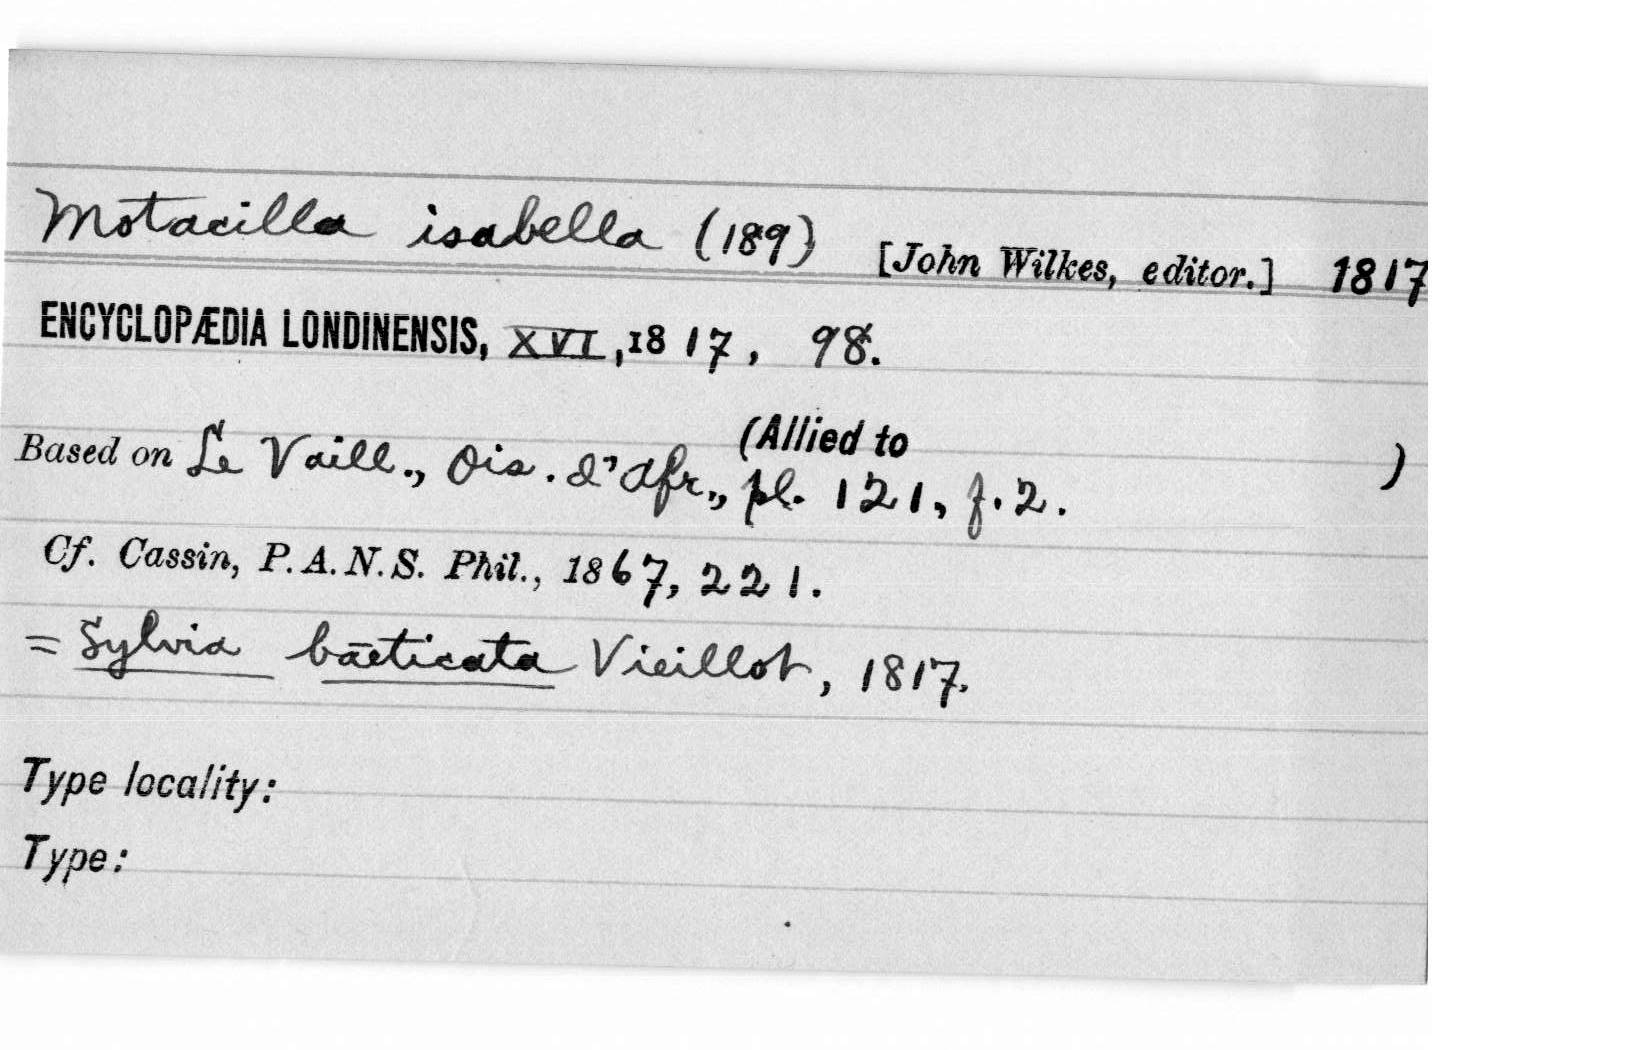 Motacilla isabella (189) [John Wilkes, editor.] 1817
ENCYCLOPÆDIA LONDINENSIS, XVI, 1817, 98.
(Allied to )
Based on Le Vaill., Ois. d'Afr., pl. 121, f. 2.
Cf. Cassin, P. A. N. S. Phil., 1867, 221.
= Sylvia baeticata Vieillot, 1817.
Type locality:
Type: